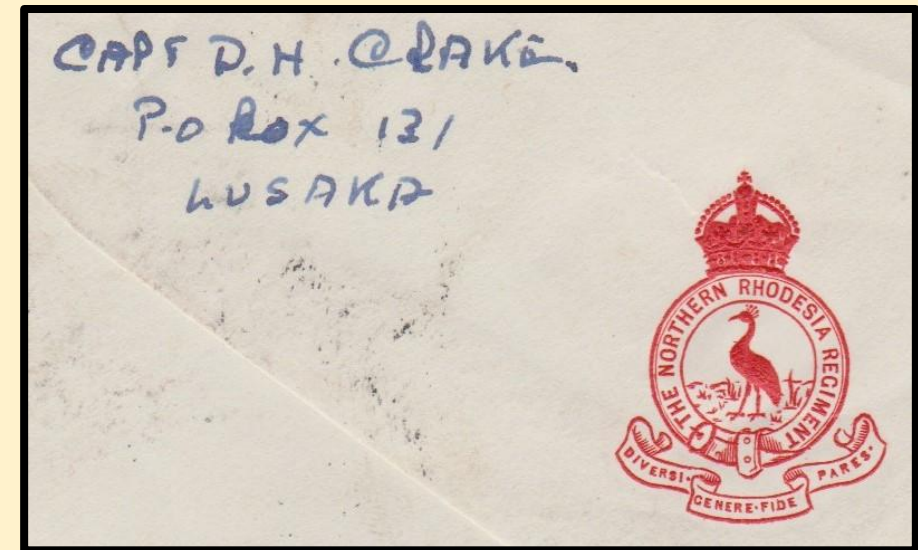 CAPT D.H. CRAKE.
P-O Box 131
LUSAKA
THE NORTHERN RHODESIA REGIMENT
DIVERSI·GENERE·FIDE·PARES·